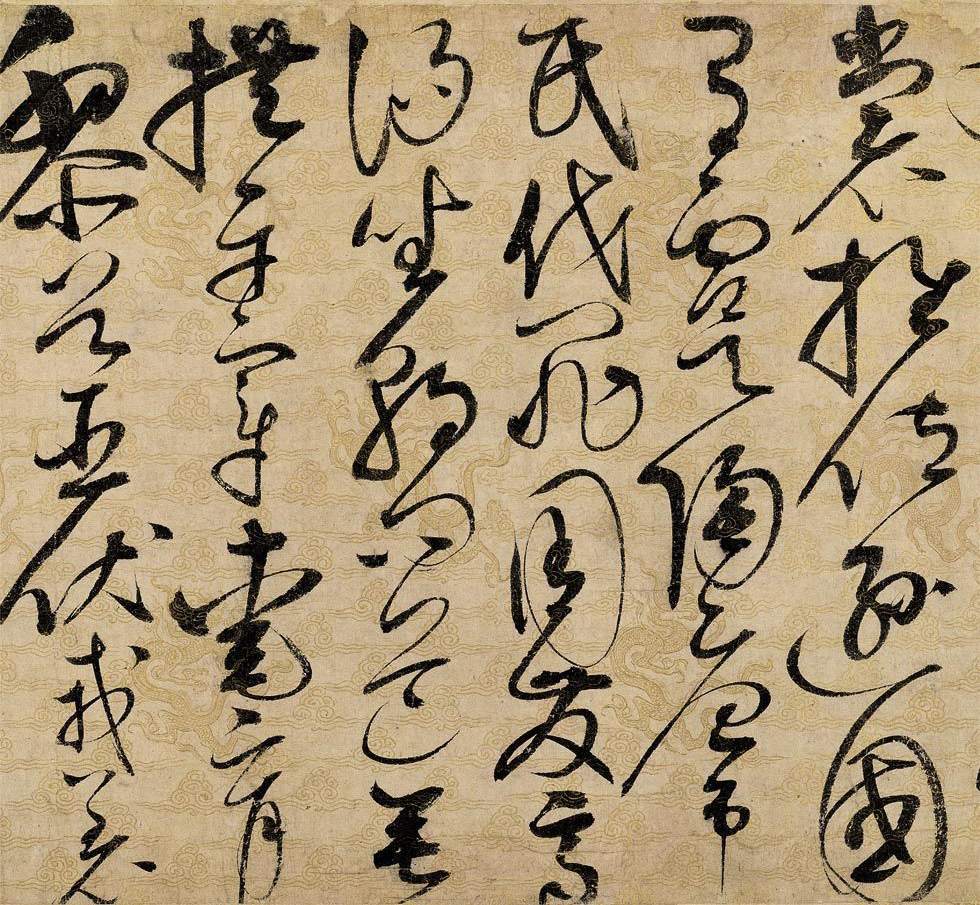 裳推位遜國
有虞陶唐弔
民伐罪周發商
湯坐朝問道垂
拱平章愛育
黎首臣伏戎羌